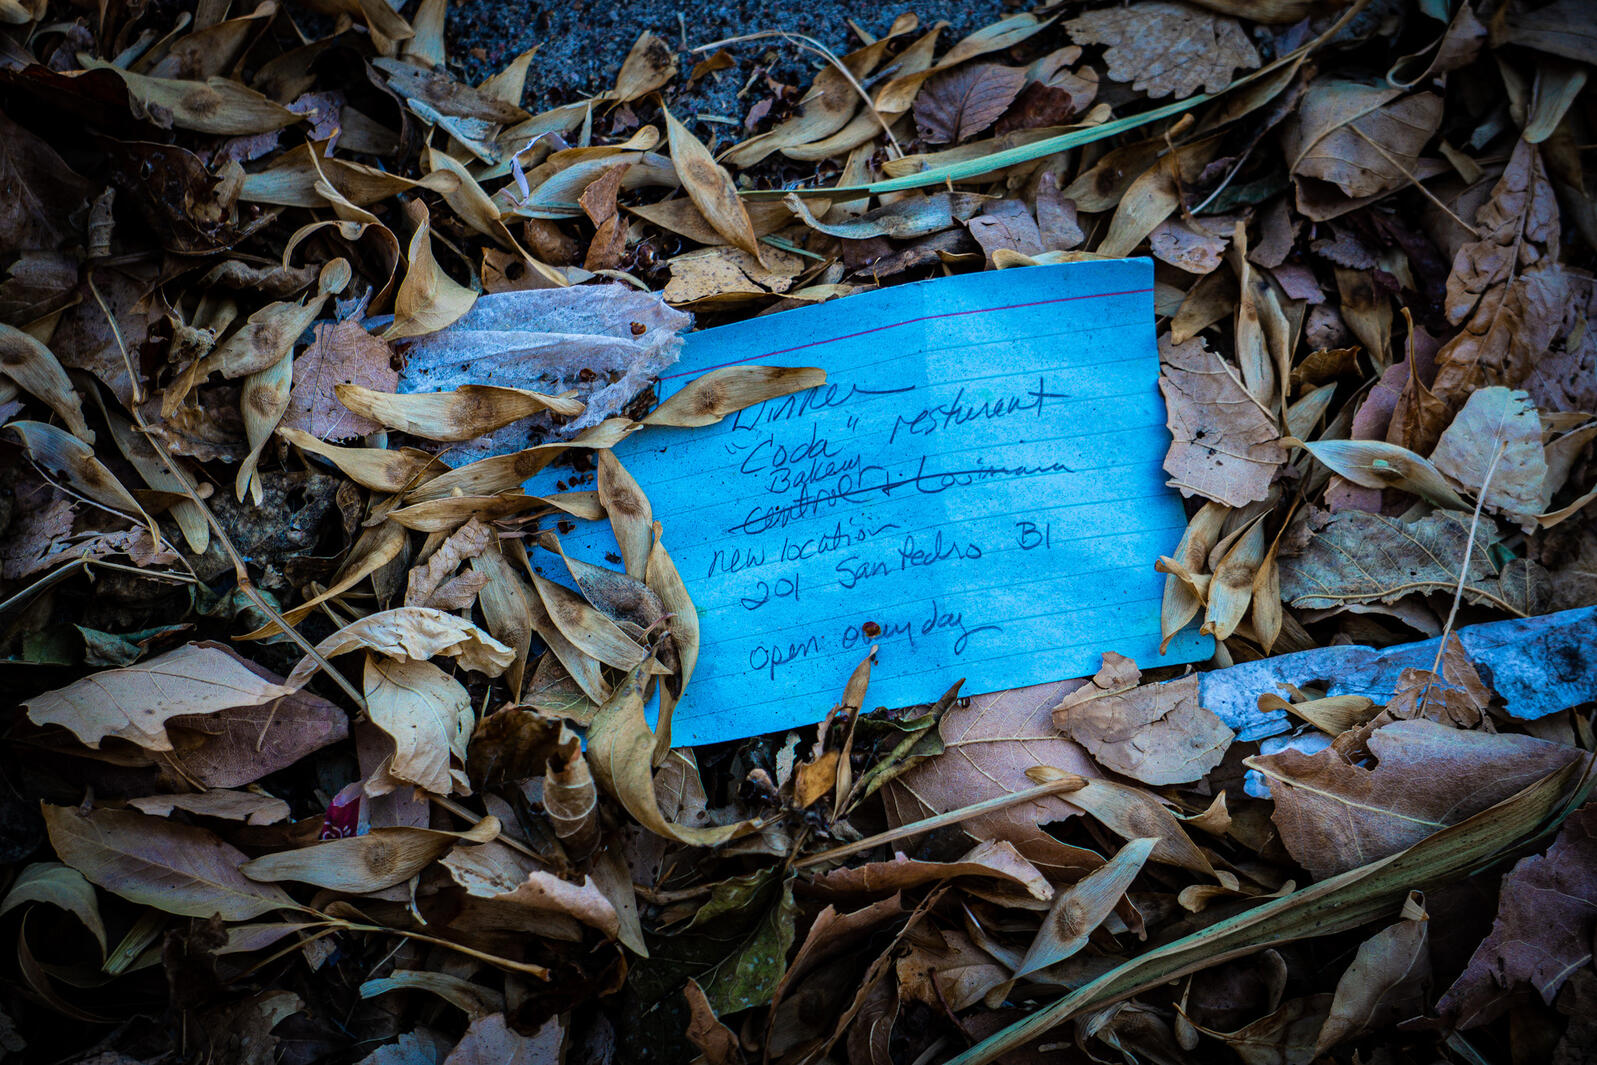 Dinner
"Coda" resturant
Bakery
Central & Losimara
new location
201 San Pedro Bl
open every day